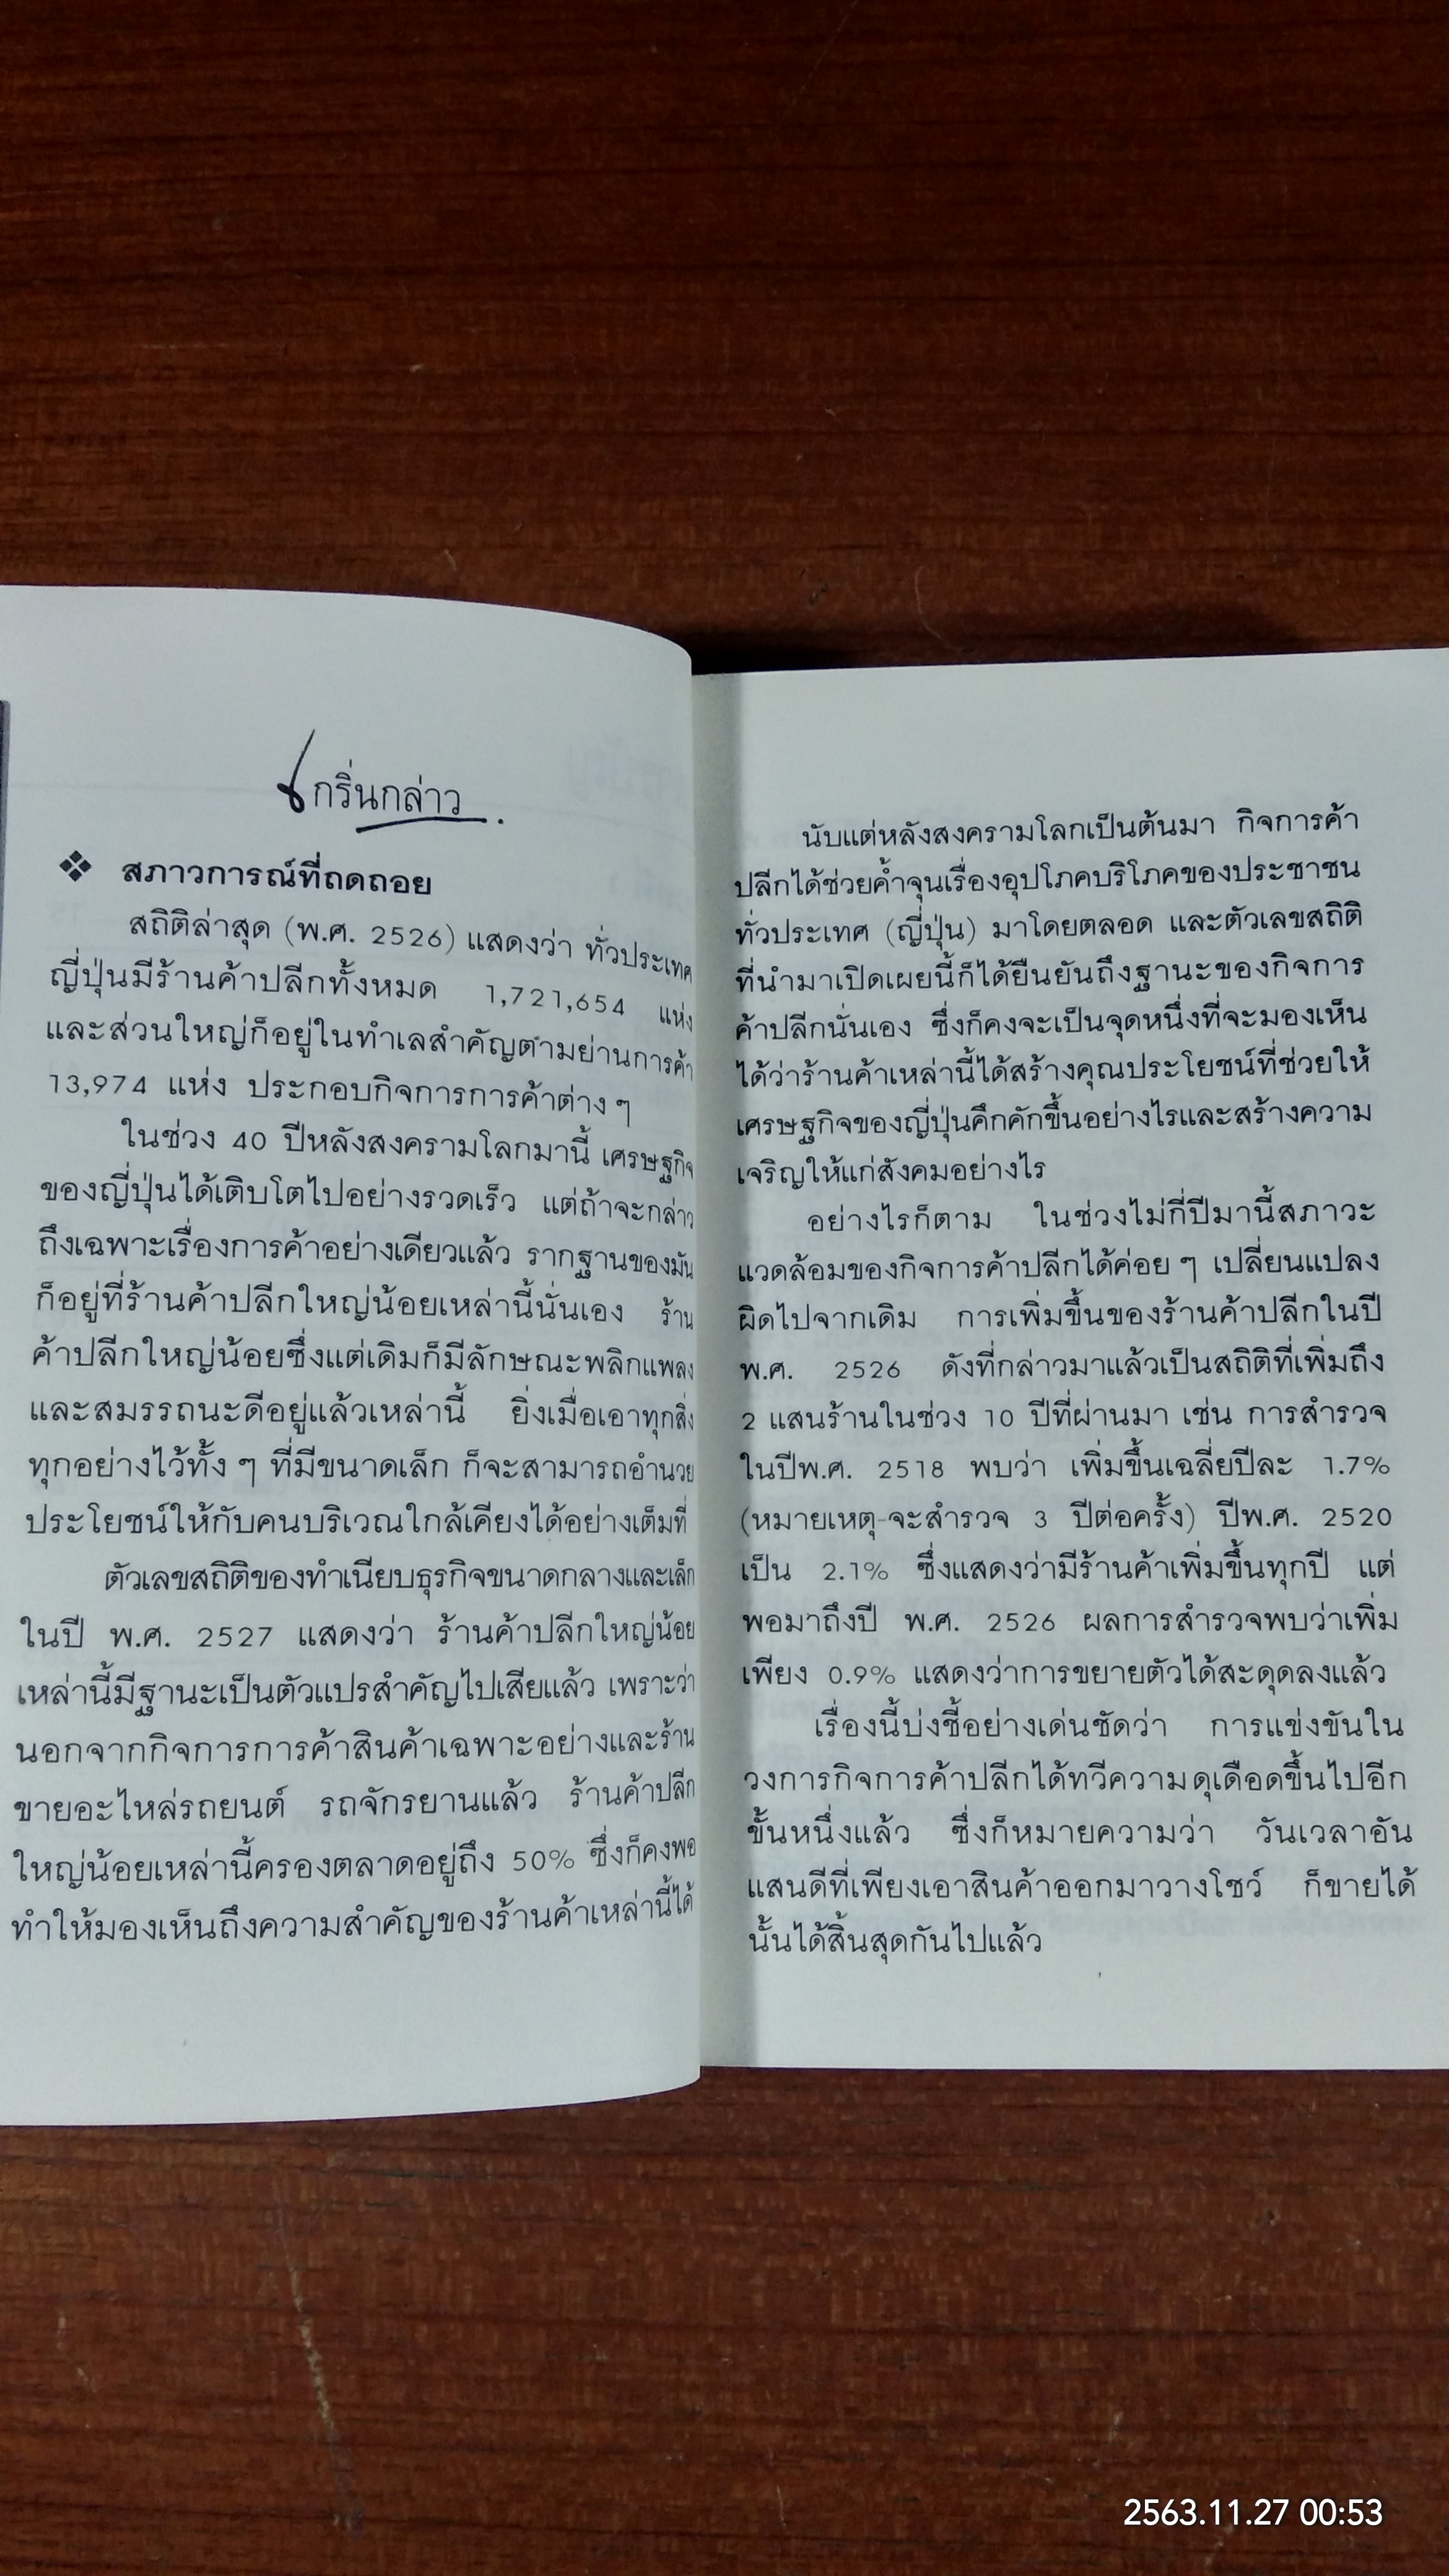 เกริ่นกล่าว
❖ สภาวการณ์ที่ถดถอย
สถิติล่าสุด (พ.ศ. 2526) แสดงว่า ทั่วประเทศ
ญี่ปุ่นมีร้านค้าปลีกทั้งหมด 1,721,654 แห่ง
และส่วนใหญ่ก็อยู่ในทำเลสำคัญตามย่านการค้า
13,974 แห่ง ประกอบกิจการการค้าต่าง ๆ
ในช่วง 40 ปีหลังสงครามโลกมานี้ เศรษฐกิจ
ของญี่ปุ่นได้เติบโตไปอย่างรวดเร็ว แต่ถ้าจะกล่าว
ถึงเฉพาะเรื่องการค้าอย่างเดียวแล้ว รากฐานของมัน
ก็อยู่ที่ร้านค้าปลีกใหญ่น้อยเหล่านี้นั่นเอง ร้าน
ค้าปลีกใหญ่น้อยซึ่งแต่เดิมก็มีลักษณะพลิกแพลง
และสมรรถนะดีอยู่แล้วเหล่านี้ ยิ่งเมื่อเอาทุกสิ่ง
ทุกอย่างไว้ทั้ง ๆ ที่มีขนาดเล็ก ก็จะสามารถอำนวย
ประโยชน์ให้กับคนบริเวณใกล้เคียงได้อย่างเต็มที่
ตัวเลขสถิติของทำเนียบธุรกิจขนาดกลางและเล็ก
ในปี พ.ศ. 2527 แสดงว่า ร้านค้าปลีกใหญ่น้อย
เหล่านี้มีฐานะเป็นตัวแปรสำคัญไปเสียแล้ว เพราะว่า
นอกจากกิจการการค้าสินค้าเฉพาะอย่างและร้าน
ขายอะไหล่รถยนต์ รถจักรยานแล้ว ร้านค้าปลีก
ใหญ่น้อยเหล่านี้ครองตลาดอยู่ถึง 50% ซึ่งก็คงพอ
ทำให้มองเห็นถึงความสำคัญของร้านค้าเหล่านี้ได้
นับแต่หลังสงครามโลกเป็นต้นมา กิจการค้า
ปลีกได้ช่วยค้ำจุนเรื่องอุปโภคบริโภคของประชาชน
ทั่วประเทศ (ญี่ปุ่น) มาโดยตลอด และตัวเลขสถิติ
ที่นำมาเปิดเผยนี้ก็ได้ยืนยันถึงฐานะของกิจการ
ค้าปลีกนั่นเอง ซึ่งก็คงจะเป็นจุดหนึ่งที่จะมองเห็น
ได้ว่าร้านค้าเหล่านี้ได้สร้างคุณประโยชน์ที่ช่วยให้
เศรษฐกิจของญี่ปุ่นคึกคักขึ้นอย่างไรและสร้างความ
เจริญให้แก่สังคมอย่างไร
อย่างไรก็ตาม ในช่วงไม่กี่ปีมานี้สภาวะ
แวดล้อมของกิจการค้าปลีกได้ค่อย ๆ เปลี่ยนแปลง
ผิดไปจากเดิม การเพิ่มขึ้นของร้านค้าปลีกในปี
พ.ศ. 2526 ดังที่กล่าวมาแล้วเป็นสถิติที่เพิ่มถึง
2 แสนร้านในช่วง 10 ปีที่ผ่านมา เช่น การสำรวจ
ในปีพ.ศ. 2518 พบว่า เพิ่มขึ้นเฉลี่ยปีละ 1.7%
(หมายเหตุ-จะสำรวจ 3 ปีต่อครั้ง) ปีพ.ศ. 2520
เป็น 2.1% ซึ่งแสดงว่ามีร้านค้าเพิ่มขึ้นทุกปี แต่
พอมาถึงปี พ.ศ. 2526 ผลการสำรวจพบว่าเพิ่ม
เพียง 0.9% แสดงว่าการขยายตัวได้สะดุดลงแล้ว
เรื่องนี้บ่งชี้อย่างเด่นชัดว่า การแข่งขันใน
วงการกิจการค้าปลีกได้ทวีความดุเดือดขึ้นไปอีก
ขั้นหนึ่งแล้ว ซึ่งก็หมายความว่า วันเวลาอัน
แสนดีที่เพียงเอาสินค้าออกมาวางโชว์ ก็ขายได้
นั้นได้สิ้นสุดกันไปแล้ว
2563.11.27 00:53